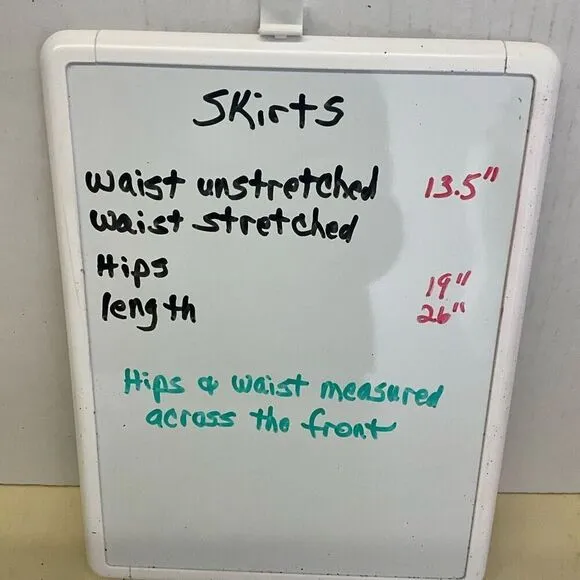 Skirts
waist unstretched 13.5"
waist stretched
Hips 19"
length 26"
Hips & waist measured
across the front